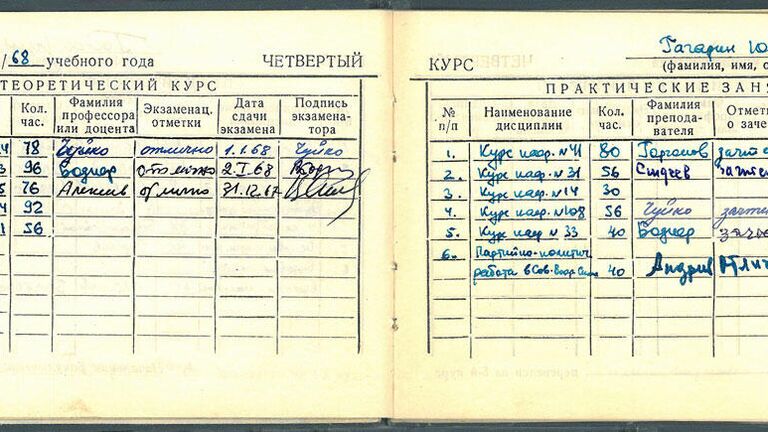 /68 учебного года ЧЕТВЕРТЫЙ
ТЕОРЕТИЧЕСКИЙ КУРС
Кол. час. Фамилия профессора или доцента Экзаменац. отметки Дата сдачи экзамена Подпись экзамена-тора
78 Чуйко отлично 1.1.68 Чуйко
96 Боднар отлично 2.I.68
76 Алексеев отлично 31.12.67
92
56
КУРС Гагарин Ю
(фамилия, имя, о
ПРАКТИЧЕСКИЕ ЗАН
№ п/п Наименование дисциплин Кол. час. Фамилия препода-вателя Отмет о заче
1. Курс каф. № 41 80 зачте
2. Курс каф. № 31 56 зачтен
3. Курс каф. № 14 30
4. Курс каф. № 108 56 Чуйко зачтен
5. Курс каф. № 33 40 Боднар зачте
6. Партийно-политич.
работа в Сов. Воор. Силах 40 Отлич